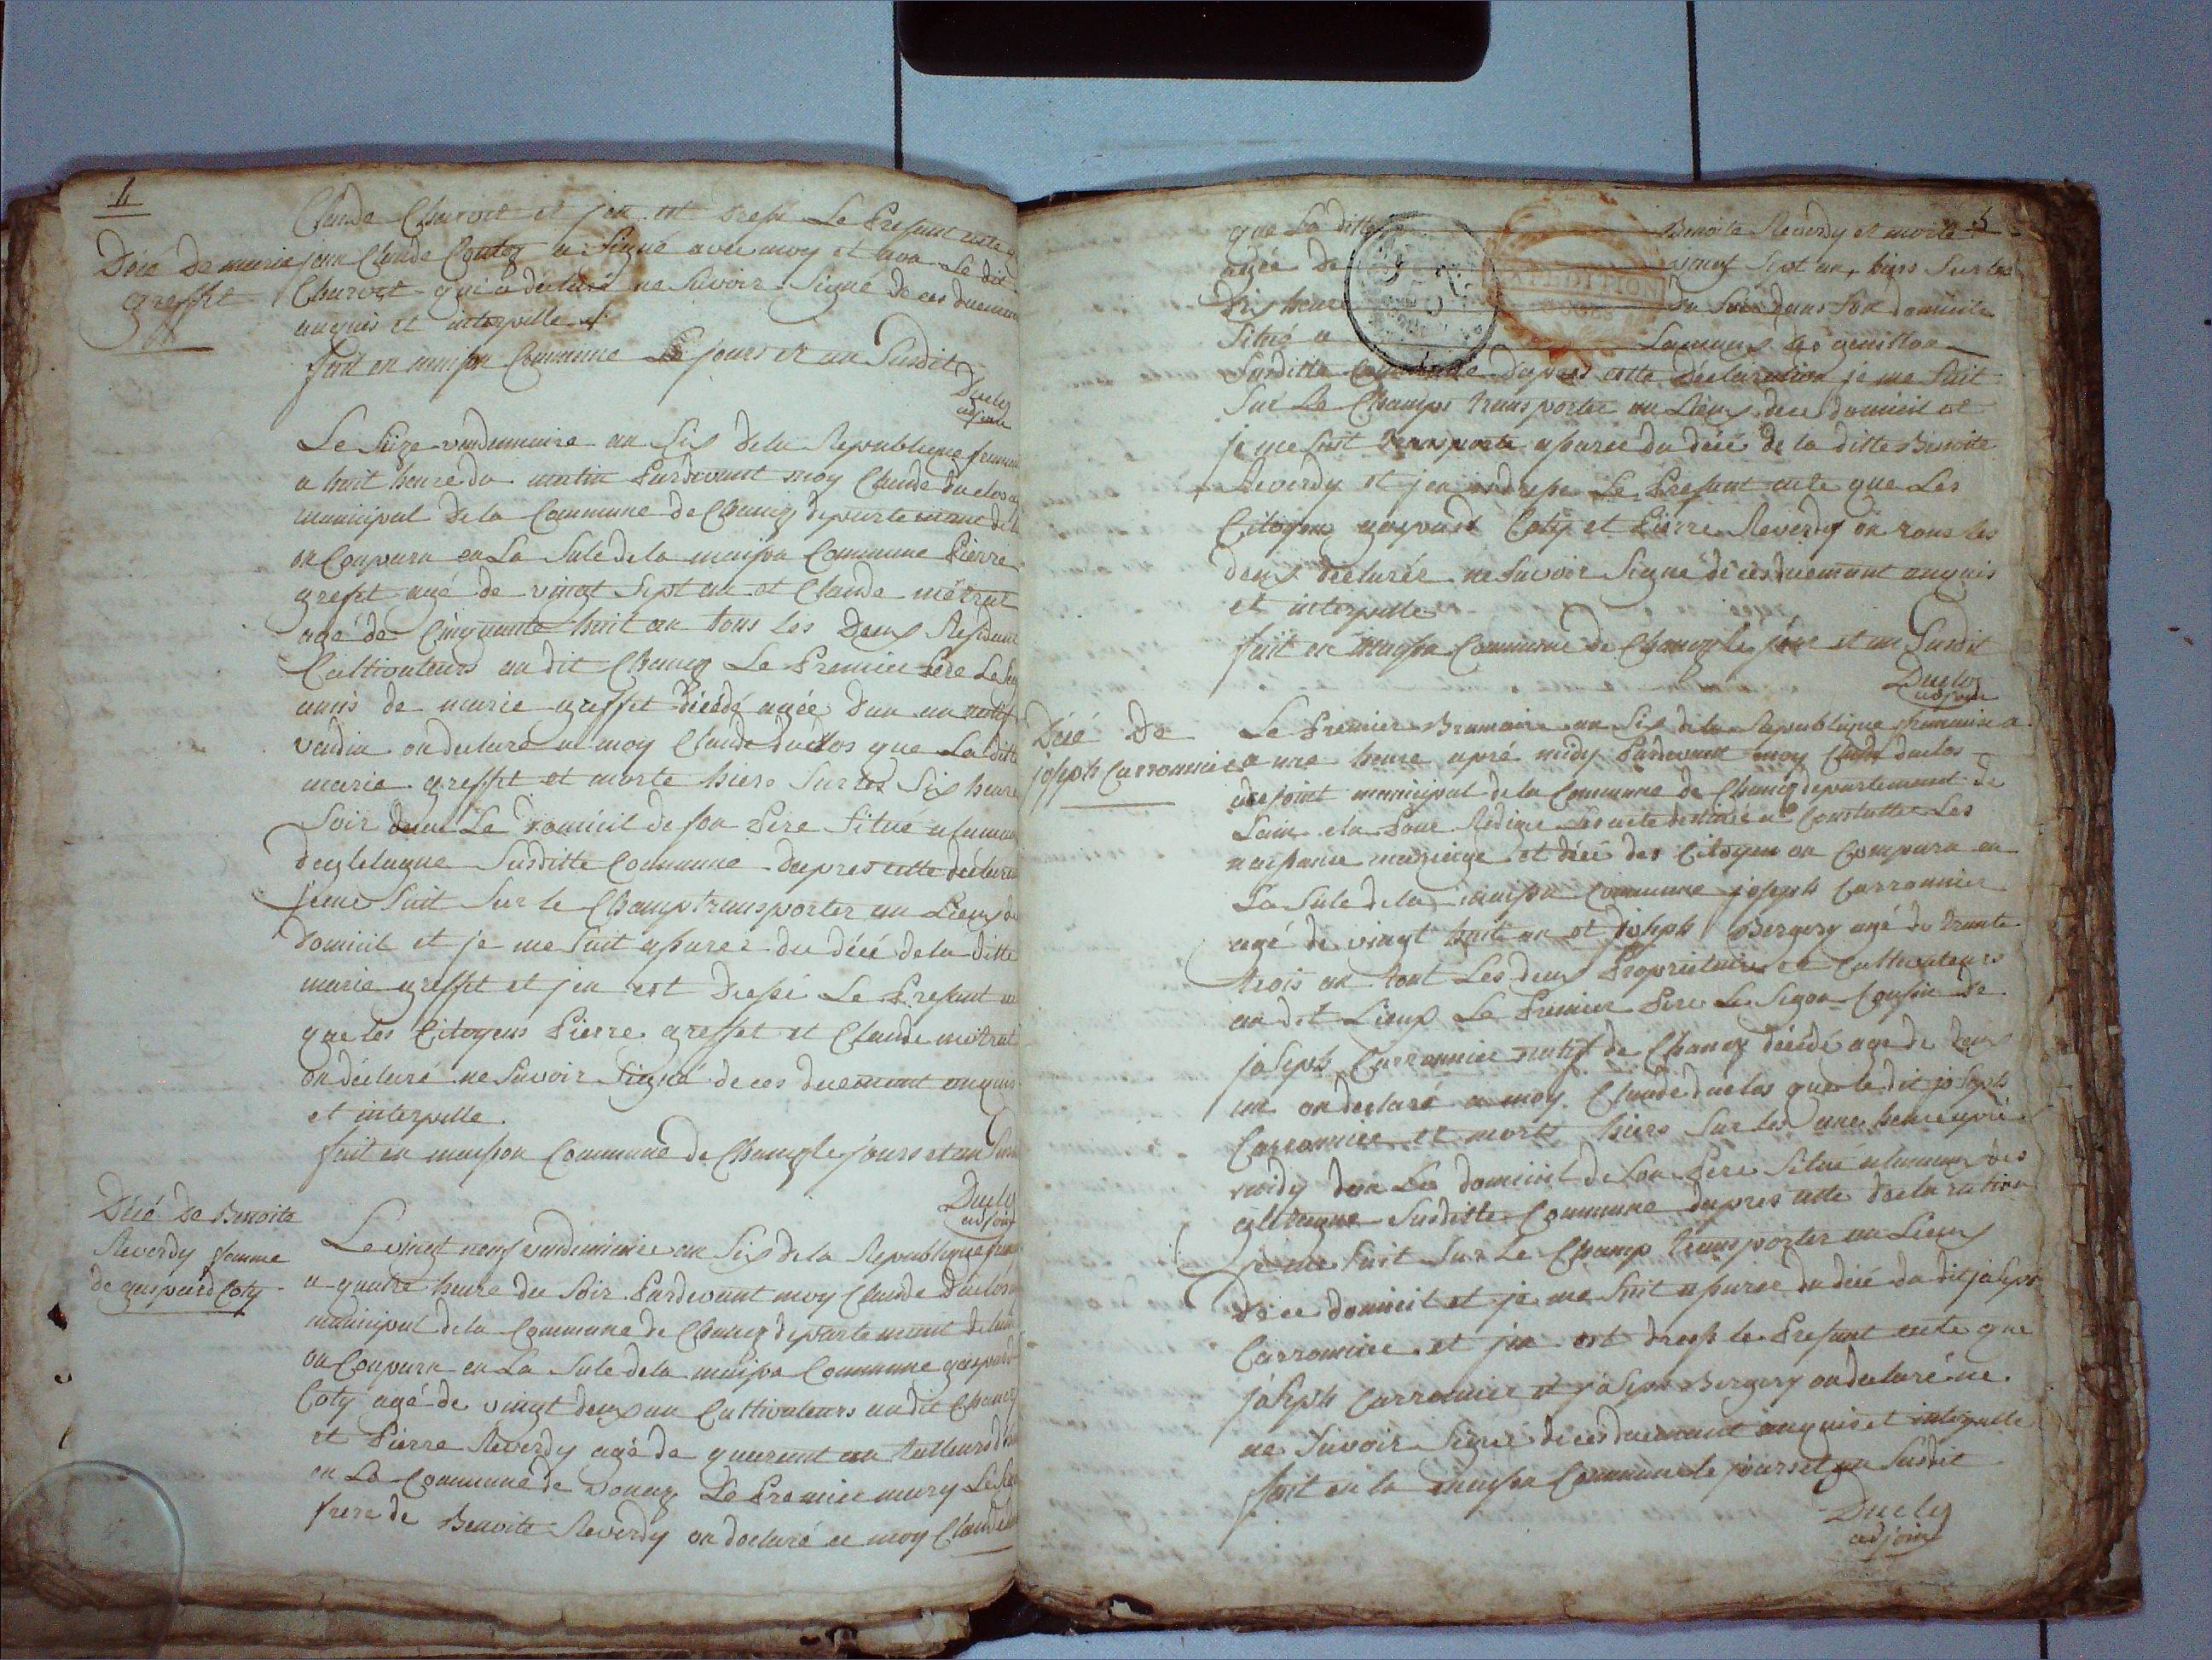 4
Claude Charvet et jen est dresse Le Present acte
Décé De marie
greffet
jean Claude Coutoz a Signé avec moy et non Le dit
Charvet qui a déclaré ne Savoir Signé de ces duement
anquis et interpelle
fait en maison Commune Le jours et an Susdit
Duclos
adjoint
Le Seize vendemiaire an Six dela Republique
a huit heure du matin Pardevant moy Claude duclos
municipal De la Commune de Chanez departemant de
on Conparu en La Sale dela maison Commune Pierre
grefet agé de vingt Sept an et Claude métrat
agé de Cinquante huit an tous les Deux Résidant
Cultivateurs au dit Chanez Le Premier Pere Le
amis de marie greffet décédé agée dun an natif
on declaré a moy Claude duclos que La ditte
marie greffet et morte hiere Sur les Six heure
Soir dans Le domicil de son Pere Situé
Susditte Commune dapres cette declara
je me Suit Sur le Champ transporter au Lieux de
domicil et je me Suit assurer du décé dela ditte
marie greffet et jen est dressé Le Present
que les Citoyens Pierre greffet et Claude métrat
on déclaré ne Savoir Signé de ces duement anquis
et interpelle.
fait en maison Commune de Chanez le jours et an Sus
Duclos
adjoint
Décé De Benoite
Reverdy famme
de gaspard Coty
Le vingt neuf vendemiaire an Six dela Republique
a quatre heure du Soir Pardevant moy Claude Duclos
municipal dela Commune de Chanez departemant de
on Conparu en La Sale dela maison Commune gaspard
Coty agé de vingt deux an Cultivateurs audit Chanez
et Pierre Reverdy agé de quarant an tailleurs
en La Commune de Le Premier mary Le
frere de Benoite Reverdy on déclaré a moy Claude
5
que La ditte Benoite Reverdy et morte
agée de vingt Sept an hiers Sur les
Dix heure du Soir Dans Son domicile
Situé a
Susditte Commune Dapres cette Déclaration je me Suit
Sur Le Champs transporter au Lieux de ce domicil et
je me Suit transporte assurer du décé de la ditte Benoite
Reverdy et jen est dresse Le Present acte que Les
Citoyens gaspard Coty et Pierre Reverdy on tous les
deux déclaréé ne Savoir Signé de ces duemant anquis
et interpelle
fait en maison Commune de Chanez le jour et an Susdit
Duclos
adjoint
Décé De
joseph Carronnier
Le Premier Brumaire an Six dela Republique
a une heure apré midy Pardevant moy Claude duclos
adejoint municipal de la Commune de Chanez departemant de
Lain elu Pour Redige Les acte destinée a Constatter Les
naissance mariage et décé des Citoyen on Comparu en
La Sale dela maison Commune joseph Carronnier
agé de vingt huit an et joseph Bergery agé de trante
trois an tout Les deux Propriétaire et Cultivateurs
au dit Lieux Le Premier Pere Le Segon Cousin de
joseph Carronnier natif de Chanez décédé age de deux
an on declaré a moy Claude duclos que le dit joseph
Carronnier et morts hiere Sur les une heure apré
midy dan Le domicil de Son Pere Situe
Susditte Commune dapres cette declaration
je me Suit Sur Le Champ transporter au Lieux
de ce domicil et je me Suit assurer du décé du dit joseph
Carronnier et jen est dresse le Present acte que
joseph Carronnier et joseph Bergery on declaré ne
ne Savoir Signé de ces duemant anquis et interpelle
fait en la maison Commune le jours et an Susdit
Duclos
adjoint